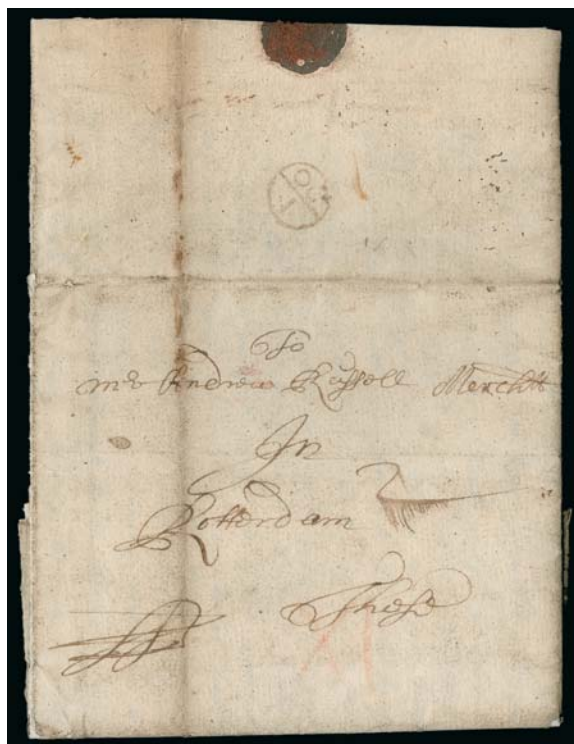 OC
1
To
Mr Andrew Russell Mercht
In
Rotterdam
These